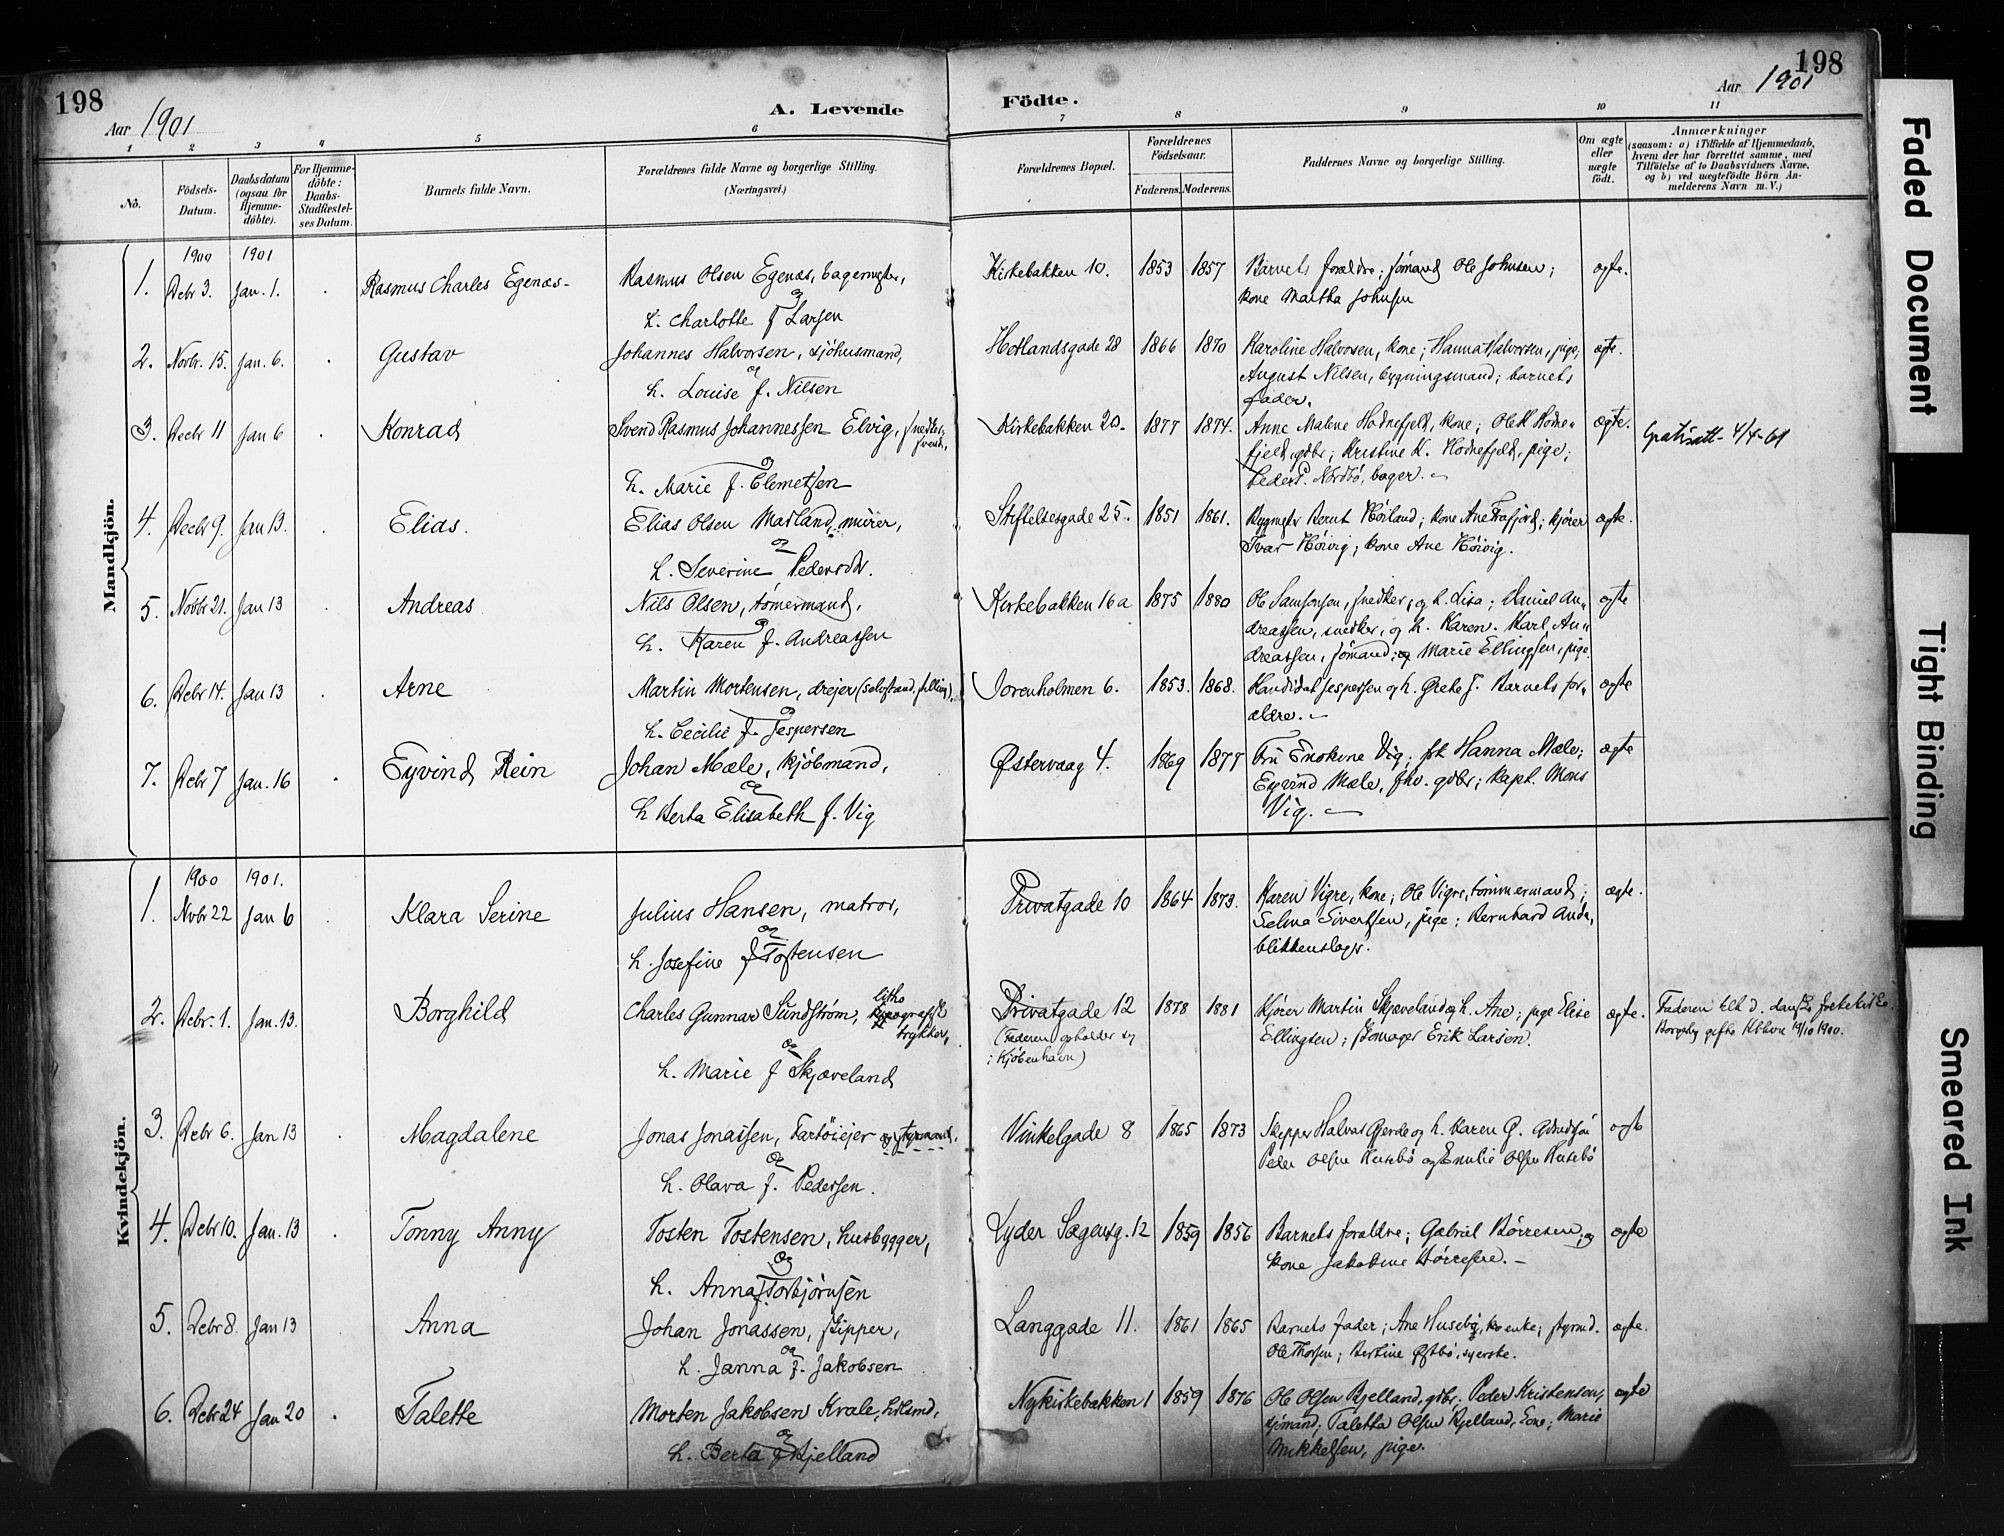 198
198
Aar 1901
A. Levende
Födte.
Aar 1901
1 2 3 4 5 6 7 8 9 10 11
No.
Födsels-Datum.
Daabsdatum (ogsaa for Hjemme-döbte).
For Hjemme-döbte: Daabs-Stadfæstel-ses Datum.
Barnets fulde Navn.
Forældrenes fulde Navne og borgerlige Stilling.
(Næringsvei.)
Forældrenes Bopæl.
Forældrenes Födselsaar.
Faderens. Moderens.
Faddernes Navne og borgerlige Stilling.
Om ægte eller uægte födt.
Anmærkninger
(saasom: a) i Tilfælde af Hjemmedaab, hvem der har forrettet samme, med Tilföielse af to Daabsvidners Navne, og b) ved uægtefödte Börn An-melderens Navn m. V.)
Mandkjön.
1900 1901
1. Debr 3. Jan. 1. Rasmus Charles Egenæs- Rasmus Olsen Egenæs, bagermester, Kirkebakken 10. 1853 1857 Barnets forældre; sømand Ole Johnsen; ægte.
og
h. Charlotte f Larsen kone Martha Johnsen
2. Novbr. 15. Jan. 6. Gustav Johannes Halvorsen, sjøhusmand, Hetlandsgade 28 1866 1870 Karoline Halvorsen, kone; Hanna Halvorsen, pige; ægte.
og
h. Louise f. Nilsen August Nilsen, bygningsmand; barnets
fader.
3. Decbr 11 Jan 6 Konrad Svend Rasmus Johannessen Elvig, snedker- Kirkebakken 20. 1877 1874. Anne Malene Hodnefjeld, kone; Ole K Hodne- ægte. 4/4-61
svend, fjeld, gdbr; Kristine K. Hodnefjeld, pige;
og
h. Marie f. Clemetsen Peder P. Nordbö, bager.
4. Decbr 9. Jan 13. Elias. Elias Olsen Masland, mürer, Stiftelsesgade 25. 1851 1861. Bygmstr Bernt Høiland; kone Ane Frafjord; kjører ægte.
og
h. Severine Pedersdtr. Ivar Høivig; kone Ane Høivig.
5. Novbr 21. Jan 13 Andreas Nils Olsen, tømermand, Kirkebakken 16a 1875 1880 Ole Samsonsen, snedker, og h. Lisa; Daniel An- ægte
og
h. Karen f. Andreassen dreassen, snedker, og h. Karen. Karl An-
dreassen, sømand; og Marie Ellingsen, pige.
6. Debr 14. Jan 13 Arne Martin Mortensen, drejer (selvstænd. stilling), Jorenholmen 6. 1853. 1868. Kandidat Jespersen og h. Grete J. Barnets for- ægte
og
h. Cecilie f. Jespersen ældre.
7. Debr 7 Jan. 16 Eyvind Rein Johan Mæle, kjøbmand, Østervaag 4. 1869 1877 Fru Enokine Vig; frk Hanna Mæle; ægte
og
h Berta Elisabeth f. Vig Eyvind Mæle, fhv. gdbr; kapt. Mons
Vig.
Kvindekjön.
1900 1901.
1. Nvbr 22 Jan 6 Klara Serine Julius Hansen, matros, Privatgade 10 1864 1873. Karen Vigre, kone; Ole Vigre, tømmermand; ægte.
og
h. Josefine f Tostensen Selma Sivertsen, pige; Bernhard Anda,
blikkenslager.
2. Debr. 1. Jan. 13. Borghild Charles Gunnar Sundstrøm, litho Privatgade 12 1878 1881 Kjører Martin Skjæveland og h. Ane; pige Elise ægte.
trykker, (Faderen opholder sig i Kjøbenhavn) Ellingsen; skomager Erik Larsen.
og
h. Marie f Skjæveland
Faderen tilh d. danske
Borgerlig gifte Kbhvn 19/10 1900.
3. Debr 6. Jan 13 Magdalene Jonas Jonassen, Fartøieier og styrmand, Vinkelgade 8 1865 1873 Skipper Halvor Gjerde og h. Karen G. ægte
og
h. Olava f. Pedersen. Peder Olsen Husebö og Emilie Olsen Husebö
4. Debr 10. Jan. 13 Tonny Anny Tosten Tostensen, husbygger, Lyder Sagensg. 12 1859 1856 Barnets forældre; Gabriel Börresen og ægte
og
h. Anna f. Torbjörnsen kone Jakobine Börresen.
5. Debr 8. Jan 13 Anna Johan Jonassen, skipper, Langgade 11. 1861 1865 Barnets fader; Ane Husebø, enke; styrmd. ægte.
og
h. Janna f. Jakobsen Ole Thorsen; Bertine Østbö, syerske.
6. Debr 24 Jan 20 Talette Morten Jakobsen Kvale, Nykirkebakken 1 1859 1876 Ole Olsen Bjelland, gdbr. Peder Kristensen, ægte
og
h. Berta f Bjelland sjömand; Taletta Olsen Bjelland, kone; Marie
Mikkelsen, pige.
Faded Document
Tight Binding
Smeared Ink